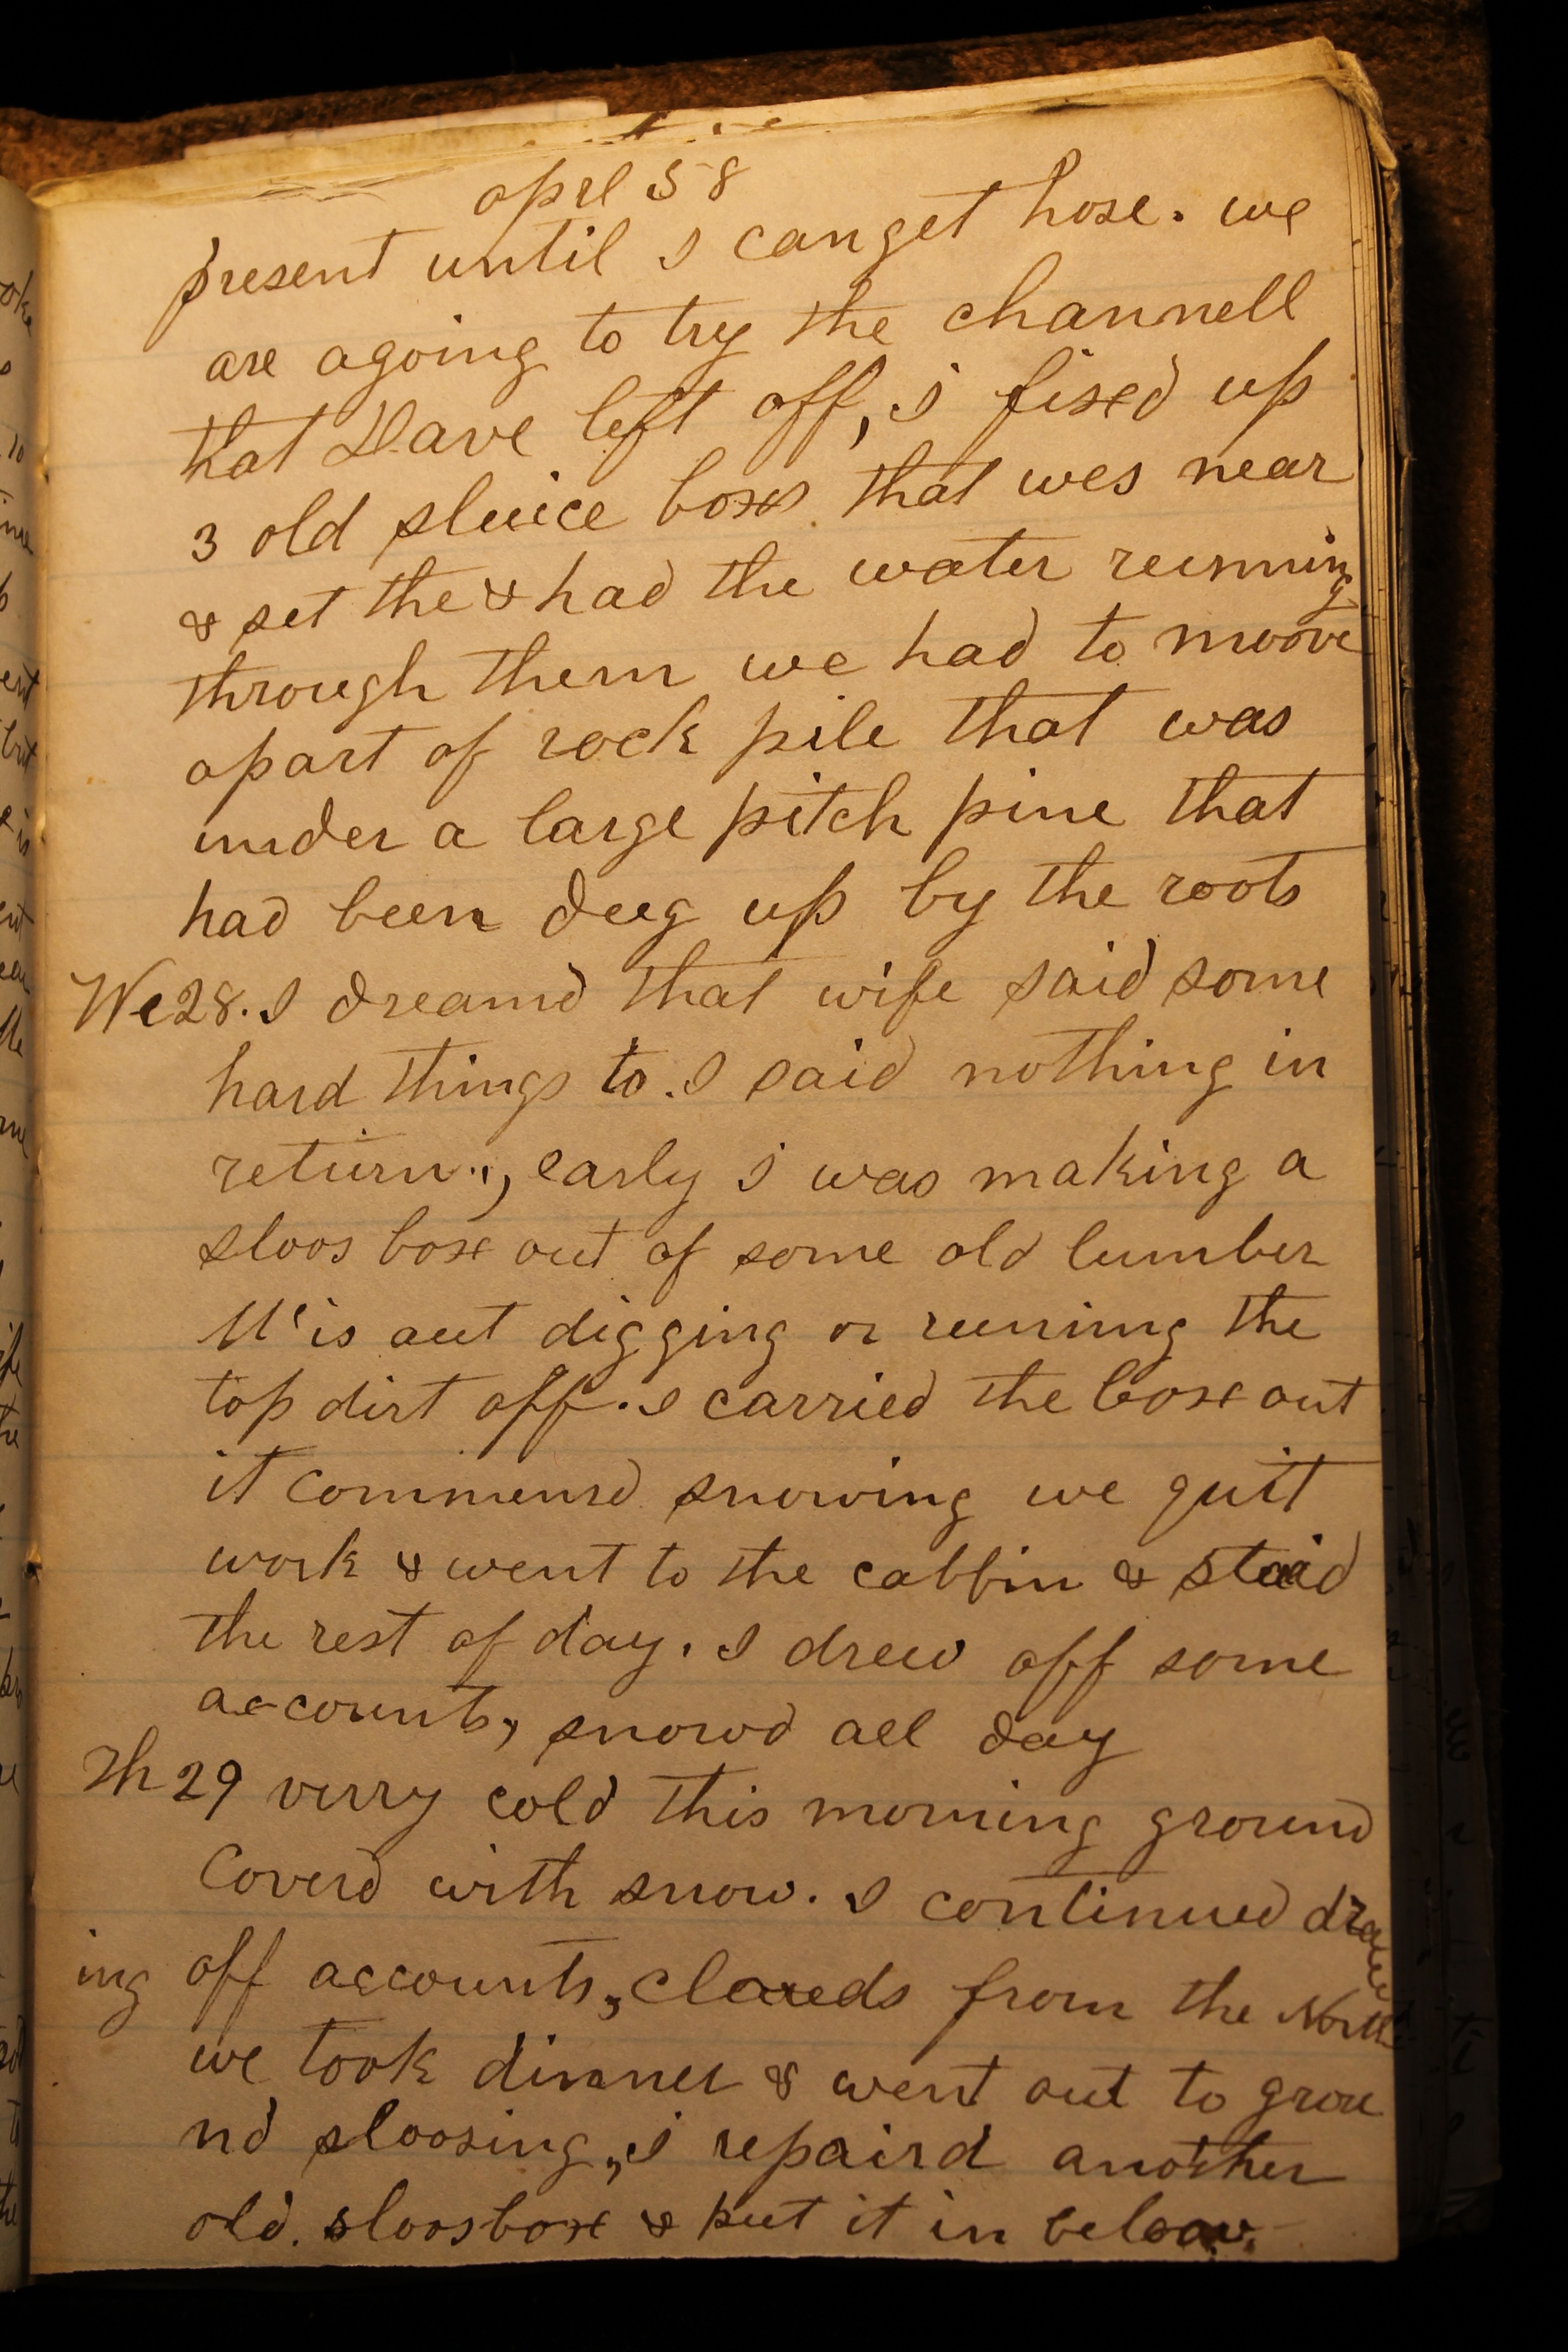 aprl 58
present until I can get hose. we
are agoing to try the channell
that Dave left off, I fixed up
3 old sluice boxs that wes near
& set the & had the water running
through them we had to moove
apart of rock pile that was
under a large pitch pine that
had been dug up by the roots
We 28. I dreamd that wife said some
hard things to. I said nothing in
return., early I was making a
sloos box out of some old lumber
is out digging or runing the
top dirt off. I carried the box out
it commensd snowing we quit
work & went to the cabbin & staid
the rest of day. I drew off some
accounts, snowd all day
Th 29 verry cold this morning ground
Coverd with snow. I continued draw
ing off accounts, clouds from the North
we took dinner & went out to grou
nd sloosing, I repaird another
old. sloosbox & put it in below.